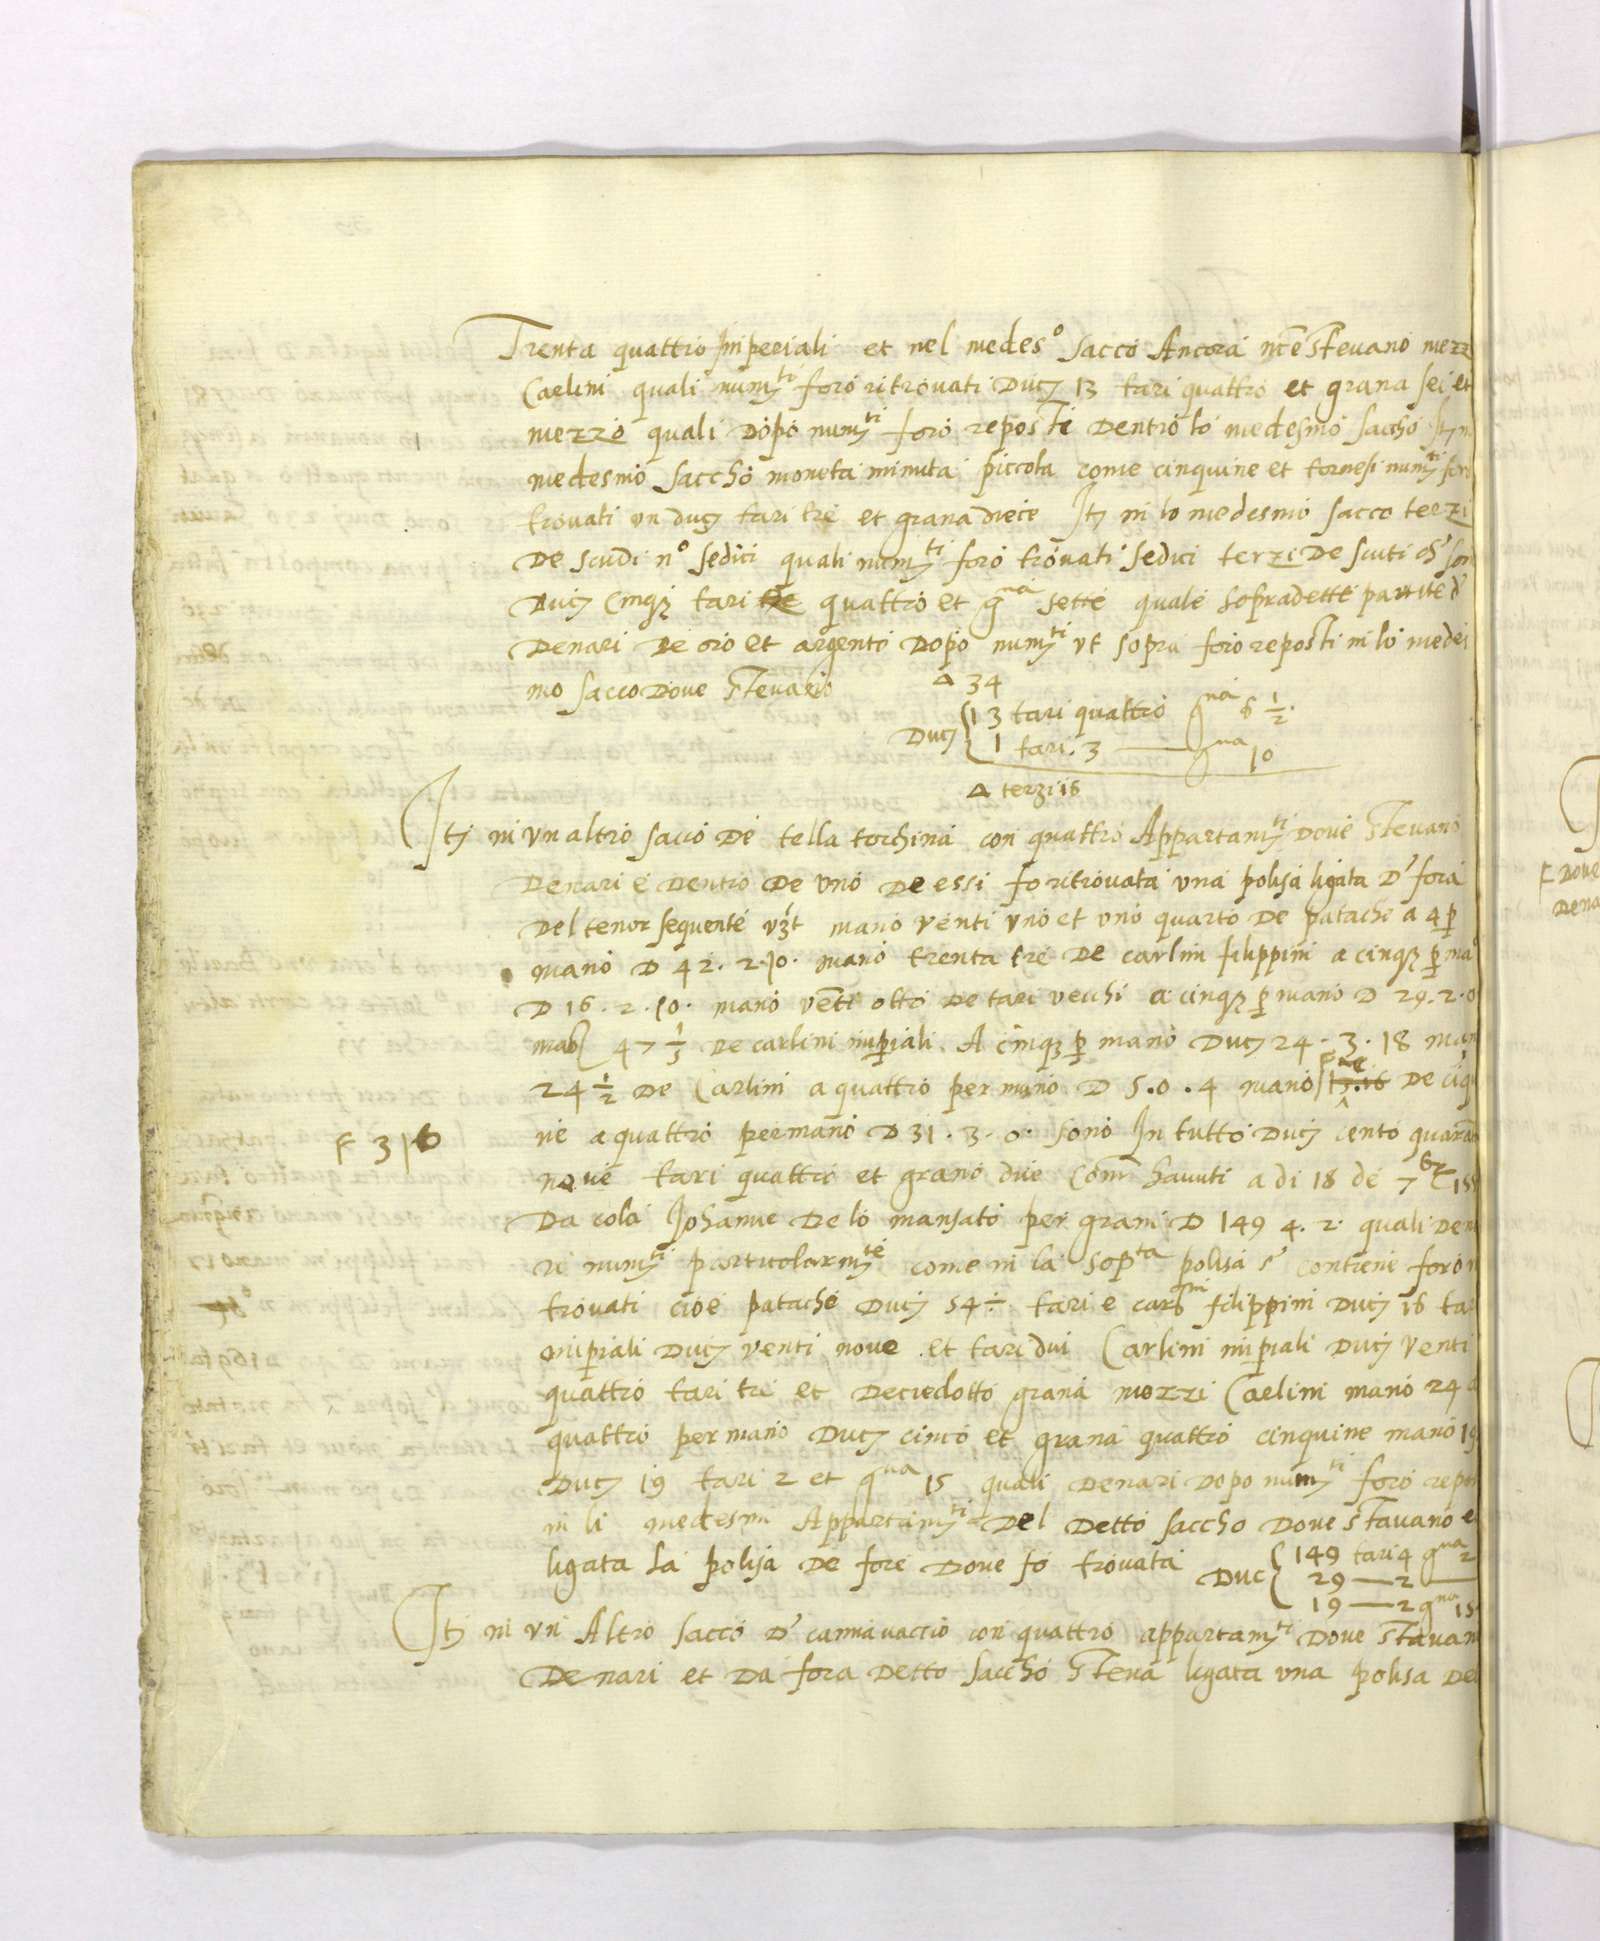 Trenta quattro imperiali et nel medes° sacco Ancora nce stevano mezz
Carlini quali num.ti foro ritrovati Duc 13 tari quattro et grana sei et
mezzo quali Dopo num.ti foro reposti Dentro lo medesmo saccho It
medesmo saccho moneta minuta piccola come cinquine et tornesi num.ti
trovati un duc tari tre et grana diece It in lo medesmo sacco terzi
De scudi n° sedici quali num.ti foro trovati sedici terzi De scuti
Ducj Cinq tari tre quattro et g.na sette quale sopradette partite d
Denari De oro et argento Dopo num.ti ut sopra foro reposti in lo medes
mo sacco Dove stevano
Δ 34
Ducj 13 tari quattro g.na 6 1/2
1 tari. 3 — g.na 10
Δ terzi 16
It in un altro sacco De tella torchina con quattro Appartam.ti Dove stevano
Denari e Dentro De uno De essi fo ritrovata una polisa ligata D fora
Del tenor sequente vzt mano venti uno et uno quarto De patache a 4 p
mano D 42. 2. 10. mano trenta tre De carlini filippini a cinq p ma
D 16. 2. 10. mano venti otto De tari vecchi a cinq p mano D 29. 2. 0
47 1/3 De carlini imperiali A cinq p mano Ducj 24. 3. 18 man
24 1/2 De Carlini a quattro per mano D 5. 0. 4 mano 13.16 De ciq
ne a quattro per mano D 31. 3. 0. sono In tutto Ducj cento quaran
F 31
nove tari quattro et grano due havuti a di 18 de 7br
Da cola Johanne De lo mansato per grani D 149 4. 2. quali Den
ri num.ti particolarm.te come in la sop.ta polisa s contiene foro
trovati cioe patache Ducj 54 tari e carlini filippini Ducj 16 tar
imperiali Ducj venti nove et tari dui Carlini imperiali Ducj venti
quattro tari tre et Deciedotto grana mezzi Carlini mano 24 a
quattro per mano Ducj cinco et grana quattro cinquine mano 19
Ducj 19 tari 2 et g.na 15 quali Denari Dopo num.ti foro repos
in li medesmi Appartam.ti Del Detto saccho Dove stavano e
ligata La polisa De fore Dove fo trovata
Duc 149 tari 4 g.na 2
29 — 2 —
19 — 2 g.na 15
It in un Altro sacco D cannavaccio con quattro appartam.ti Dove stavan
Denari et Da fora Detto saccho steva ligata una polisa De